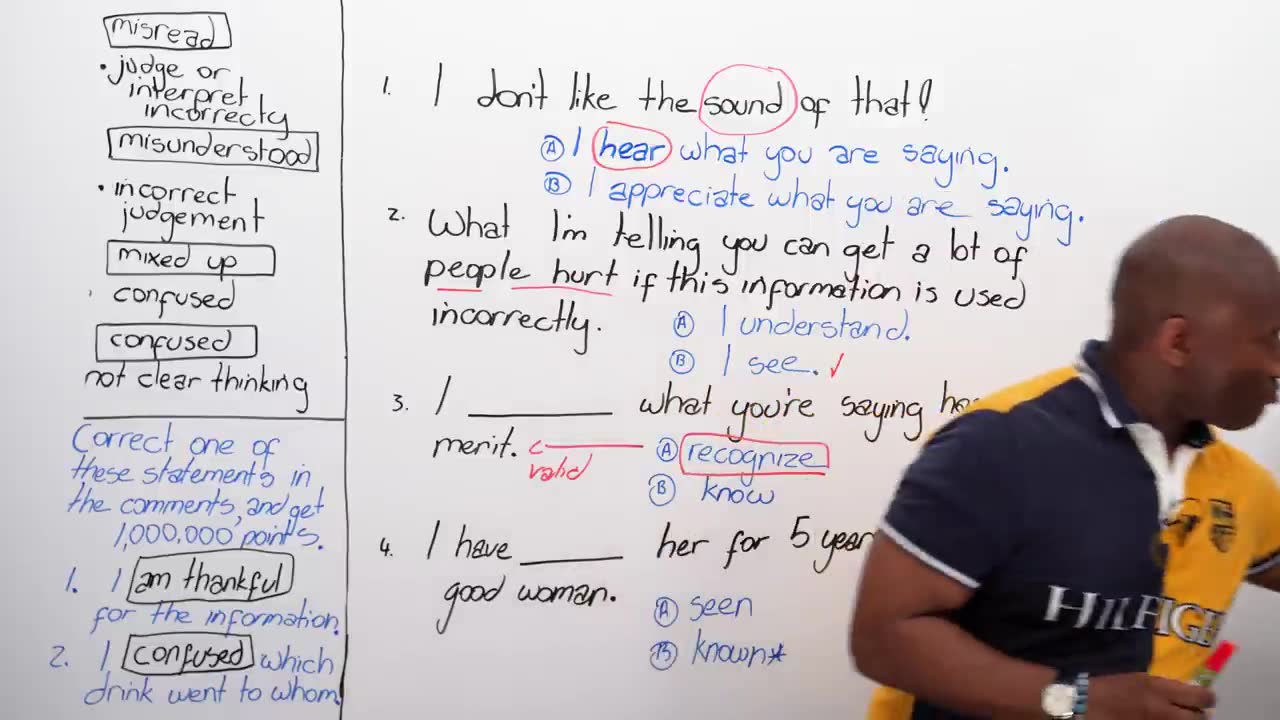 misread
• judge or
interpret
incorrecty
misunderstood
• incorrect
judgement
mixed up
confused
confused
not clear thinking
Correct one of
these statements in
the comments, and get
1,000,000 points.
1. I am thankful
for the information.
2. I confused which
drink went to whom.
1. I don't like the sound of that!
Ⓐ I hear what you are saying.
Ⓑ I appreciate what you are saying.
2. What I'm telling you can get a lot of
people hurt if this information is used
incorrectly.
Ⓐ I understand.
Ⓑ I see. ✓
3. I ______ what you're saying
merit.
valid
Ⓐ recognize
Ⓑ know
4. I have ______ her for 5 year
good woman.
Ⓐ seen
Ⓑ known*
HILFIGE